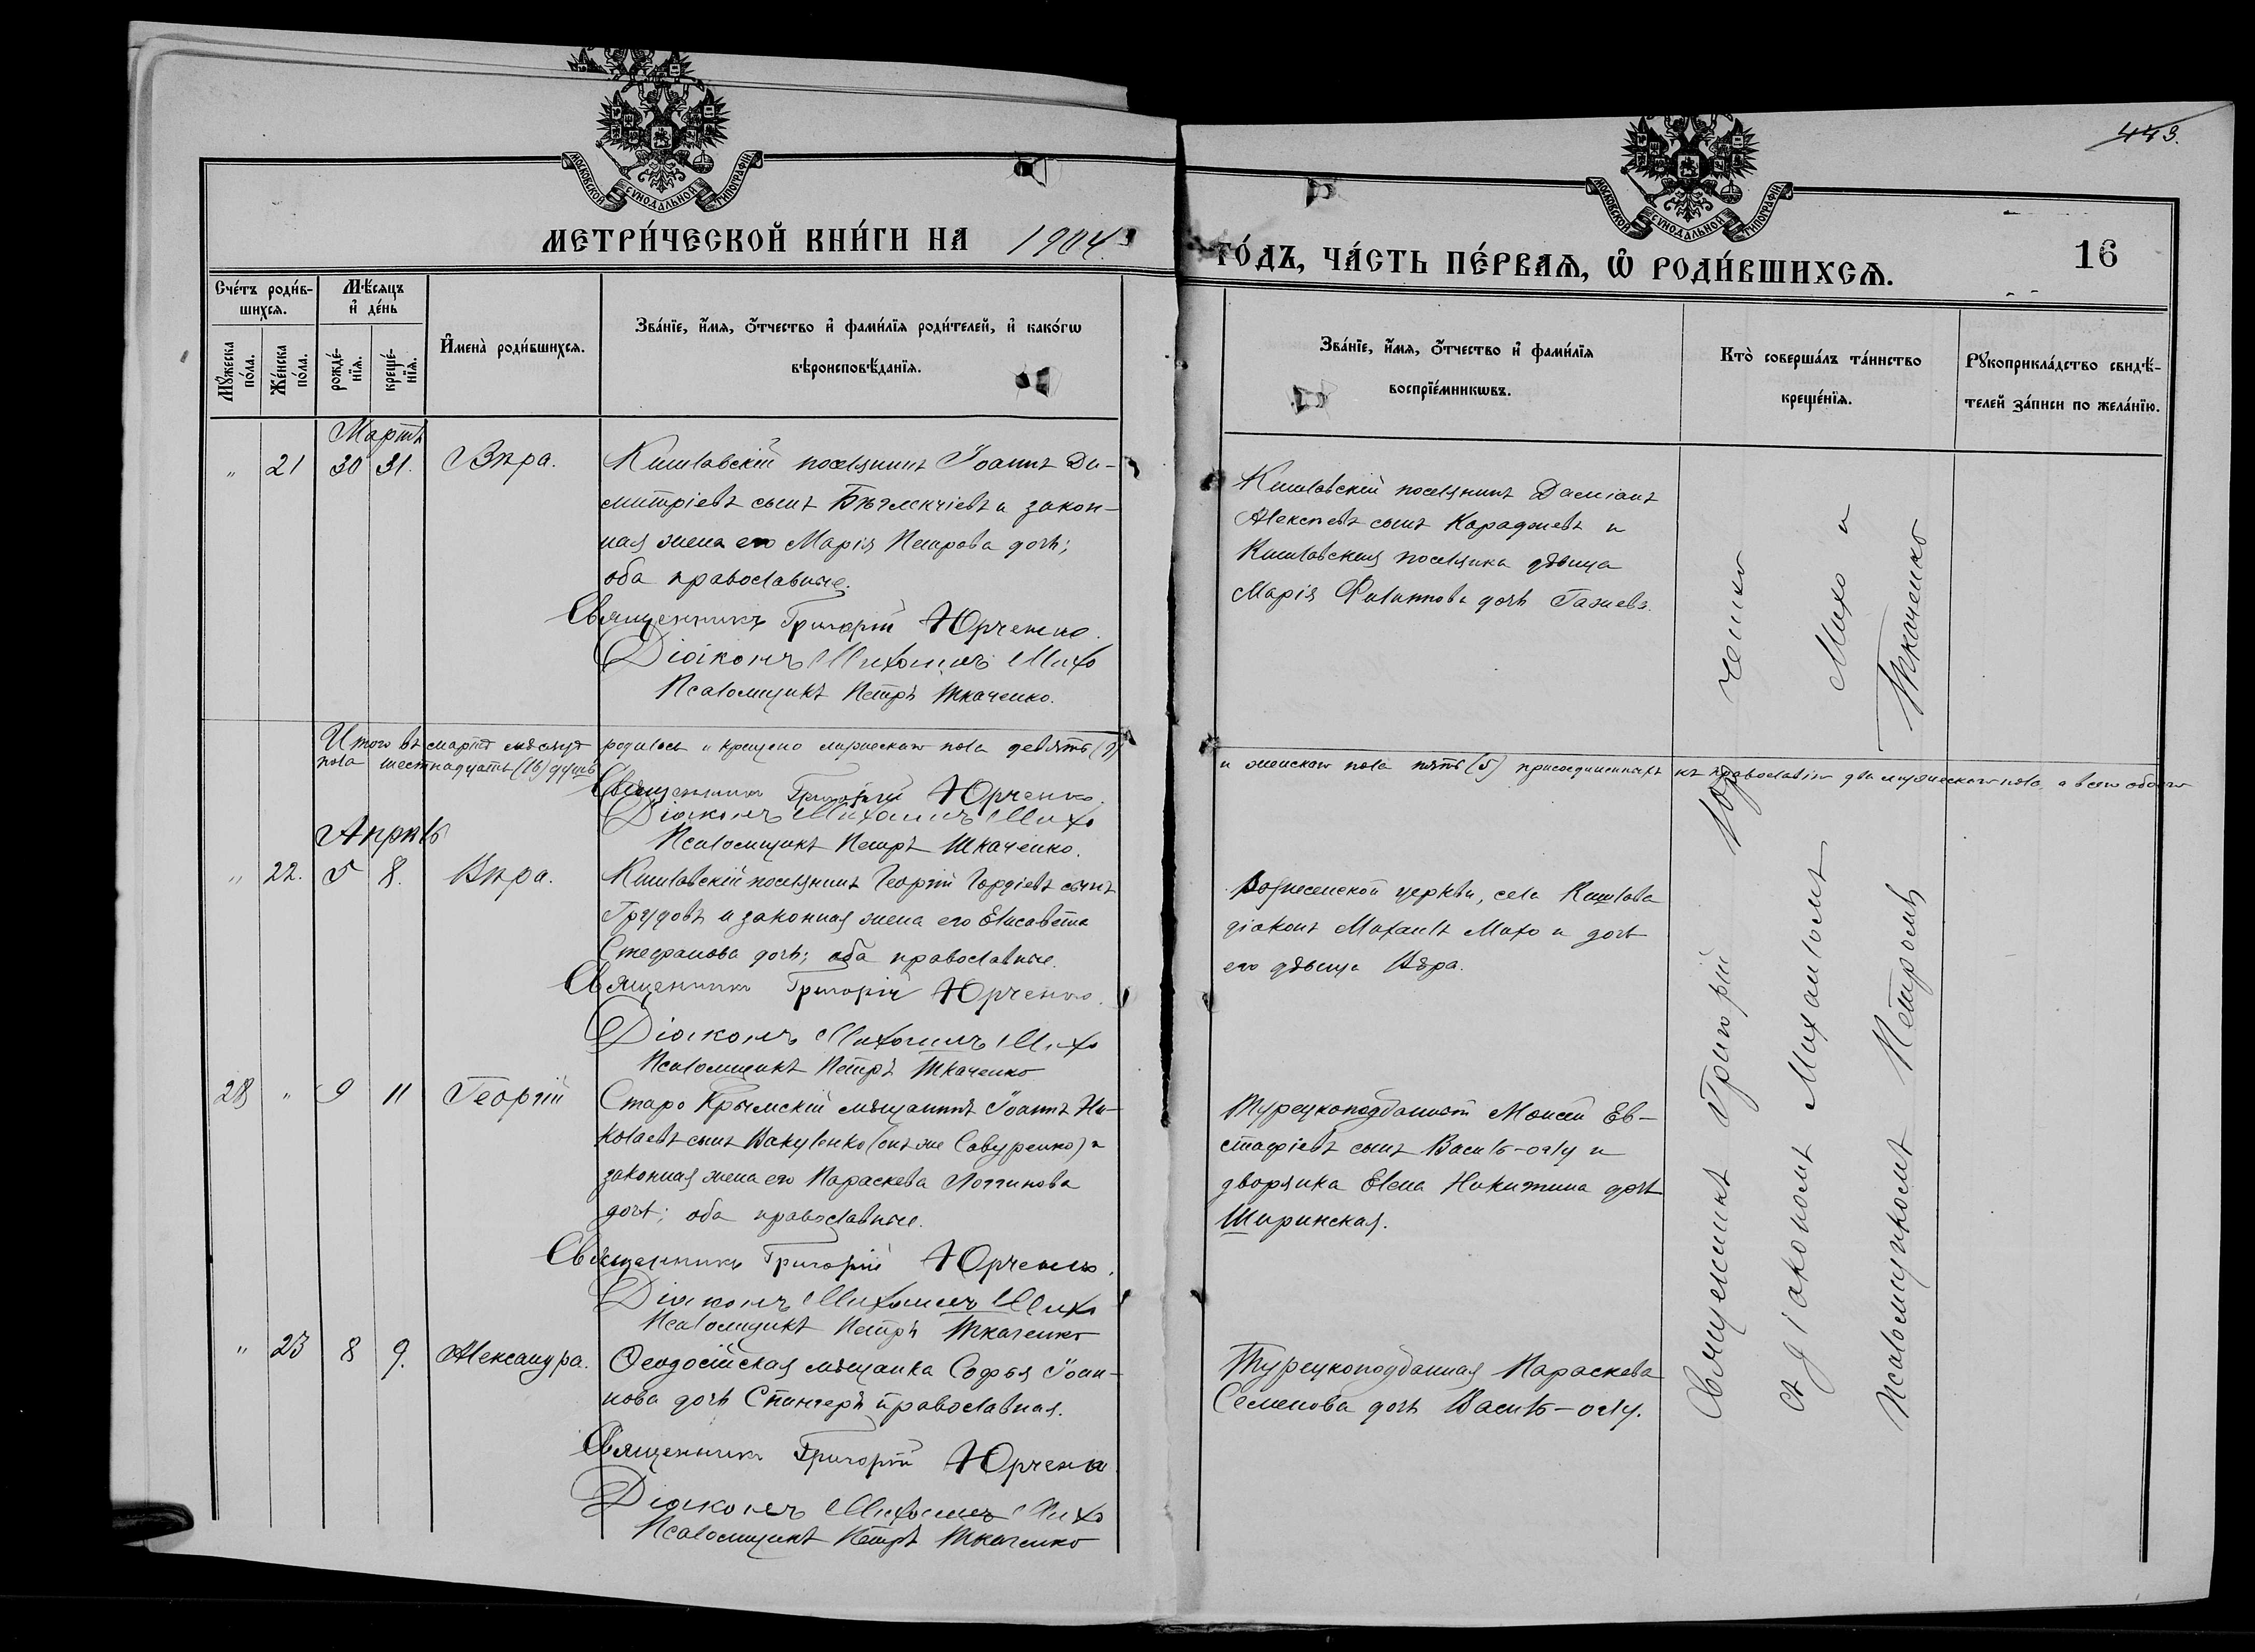 443.
МОСКОВСКОЙ СУНОДАЛЬНОЙ ТИПОГРАФІИ
МЕТРИ́ЧЕСКОЙ КНИ́ГИ НА 1904
МОСКОВСКОЙ СУНОДАЛЬНОЙ ТИПОГРАФІИ
ГО́ДЪ, ЧА́СТЬ ПЕ́РВАѦ, Ѡ҆ РОДИ́ВШИХСѦ.
16
Сче́тъ роди́в-
шихсѧ.
Мꙋ́жеска по́ла.
Же́нска по́ла.
Мѣ́сѧцъ
и҆ де́нь
рожде́-
нїѧ.
креще́-
нїѧ.
И҆мена̀ роди́вшихсѧ.
Зва́нїе, и҆́мѧ, ѻ҆́тчество и҆ фами́лїѧ роди́телей, и҆ како́гѡ
вѣроисповѣ́данїѧ.
Зва́нїе, и҆́мѧ, ѻ҆́тчество и҆ фами́лїѧ
воспрїе́мникѡвъ.
Кто̀ соверша́лъ та́инство
креще́нїѧ.
Рꙋкоприкла́дство свидѣ́-
телей за́писи по жела́нїю.
Мартъ
" 21 30 31. Вѣра.
Кишлавскій поселянинъ Іоаннъ Ди-
митріевъ сынъ Бѣчмекчіевъ и закон-
ная жена его Марія Петрова дочь;
оба православные.
Священникъ Григорій Юрченко.
Діаконъ Михаилъ Михо
Псаломщикъ Петръ Ткаченко.
Кишлавскій поселянинъ Даміанъ
Алексѣевъ сынъ Караджевъ и
Кишлавская поселянка дѣвица
Марія Филиппова дочь
Итого въ мартѣ мѣсяцѣ родилось и крещено мужескаго пола девять (9)
и женскаго пола пять (5) присоединенныхъ къ православію два мужескаго пола а всего обоего
пола шестнадцать (16) душъ
Священникъ Григорій Юрченко.
Діаконъ Михаилъ Михо
Псаломщикъ Петръ Ткаченко.
Апрѣль
" 22. 5 8. Вѣра.
Кишлавскій поселянинъ Георгій Гордіевъ сынъ
Трудовъ и законная жена его Елисавета
Стефанова дочь; оба православные.
Священникъ Григорій Юрченко.
Діаконъ Михаилъ Михо
Псаломщикъ Петръ Ткаченко
Вознесенской церкви, села Кишлава
діаконъ Михаилъ Михо и дочь
его дѣвица Вѣра.
28 " 9 11 Георгій
Старо Крымскій мѣщанинъ Іоаннъ Ни-
колаевъ сынъ Вакуленко (онъ же Савуренко) и
законная жена его Параскева Логгинова
дочь; оба православные.
Священникъ Григорій Юрченко.
Діаконъ Михаилъ Михо
Псаломщикъ Петръ Ткаченко
Турецкоподданный Моисей Ев-
стафіевъ сынъ Василь-оглу и
дворянка Елена Никитина дочь
Ширинская.
" 23 8 9. Александра.
Ѳеодосійская мѣщанка Софья Іоан-
нова дочь Спингеръ православная.
Священникъ Григорій Юрченко.
Діаконъ Михаилъ Михо
Псаломщикъ Петръ Ткаченко
Турецкоподданная Параскева
Семенова дочь Василь-оглу.
Священникъ Григорій Юрченко
съ діакономъ Михаиломъ Михо и
псаломщикомъ Петромъ Ткаченко